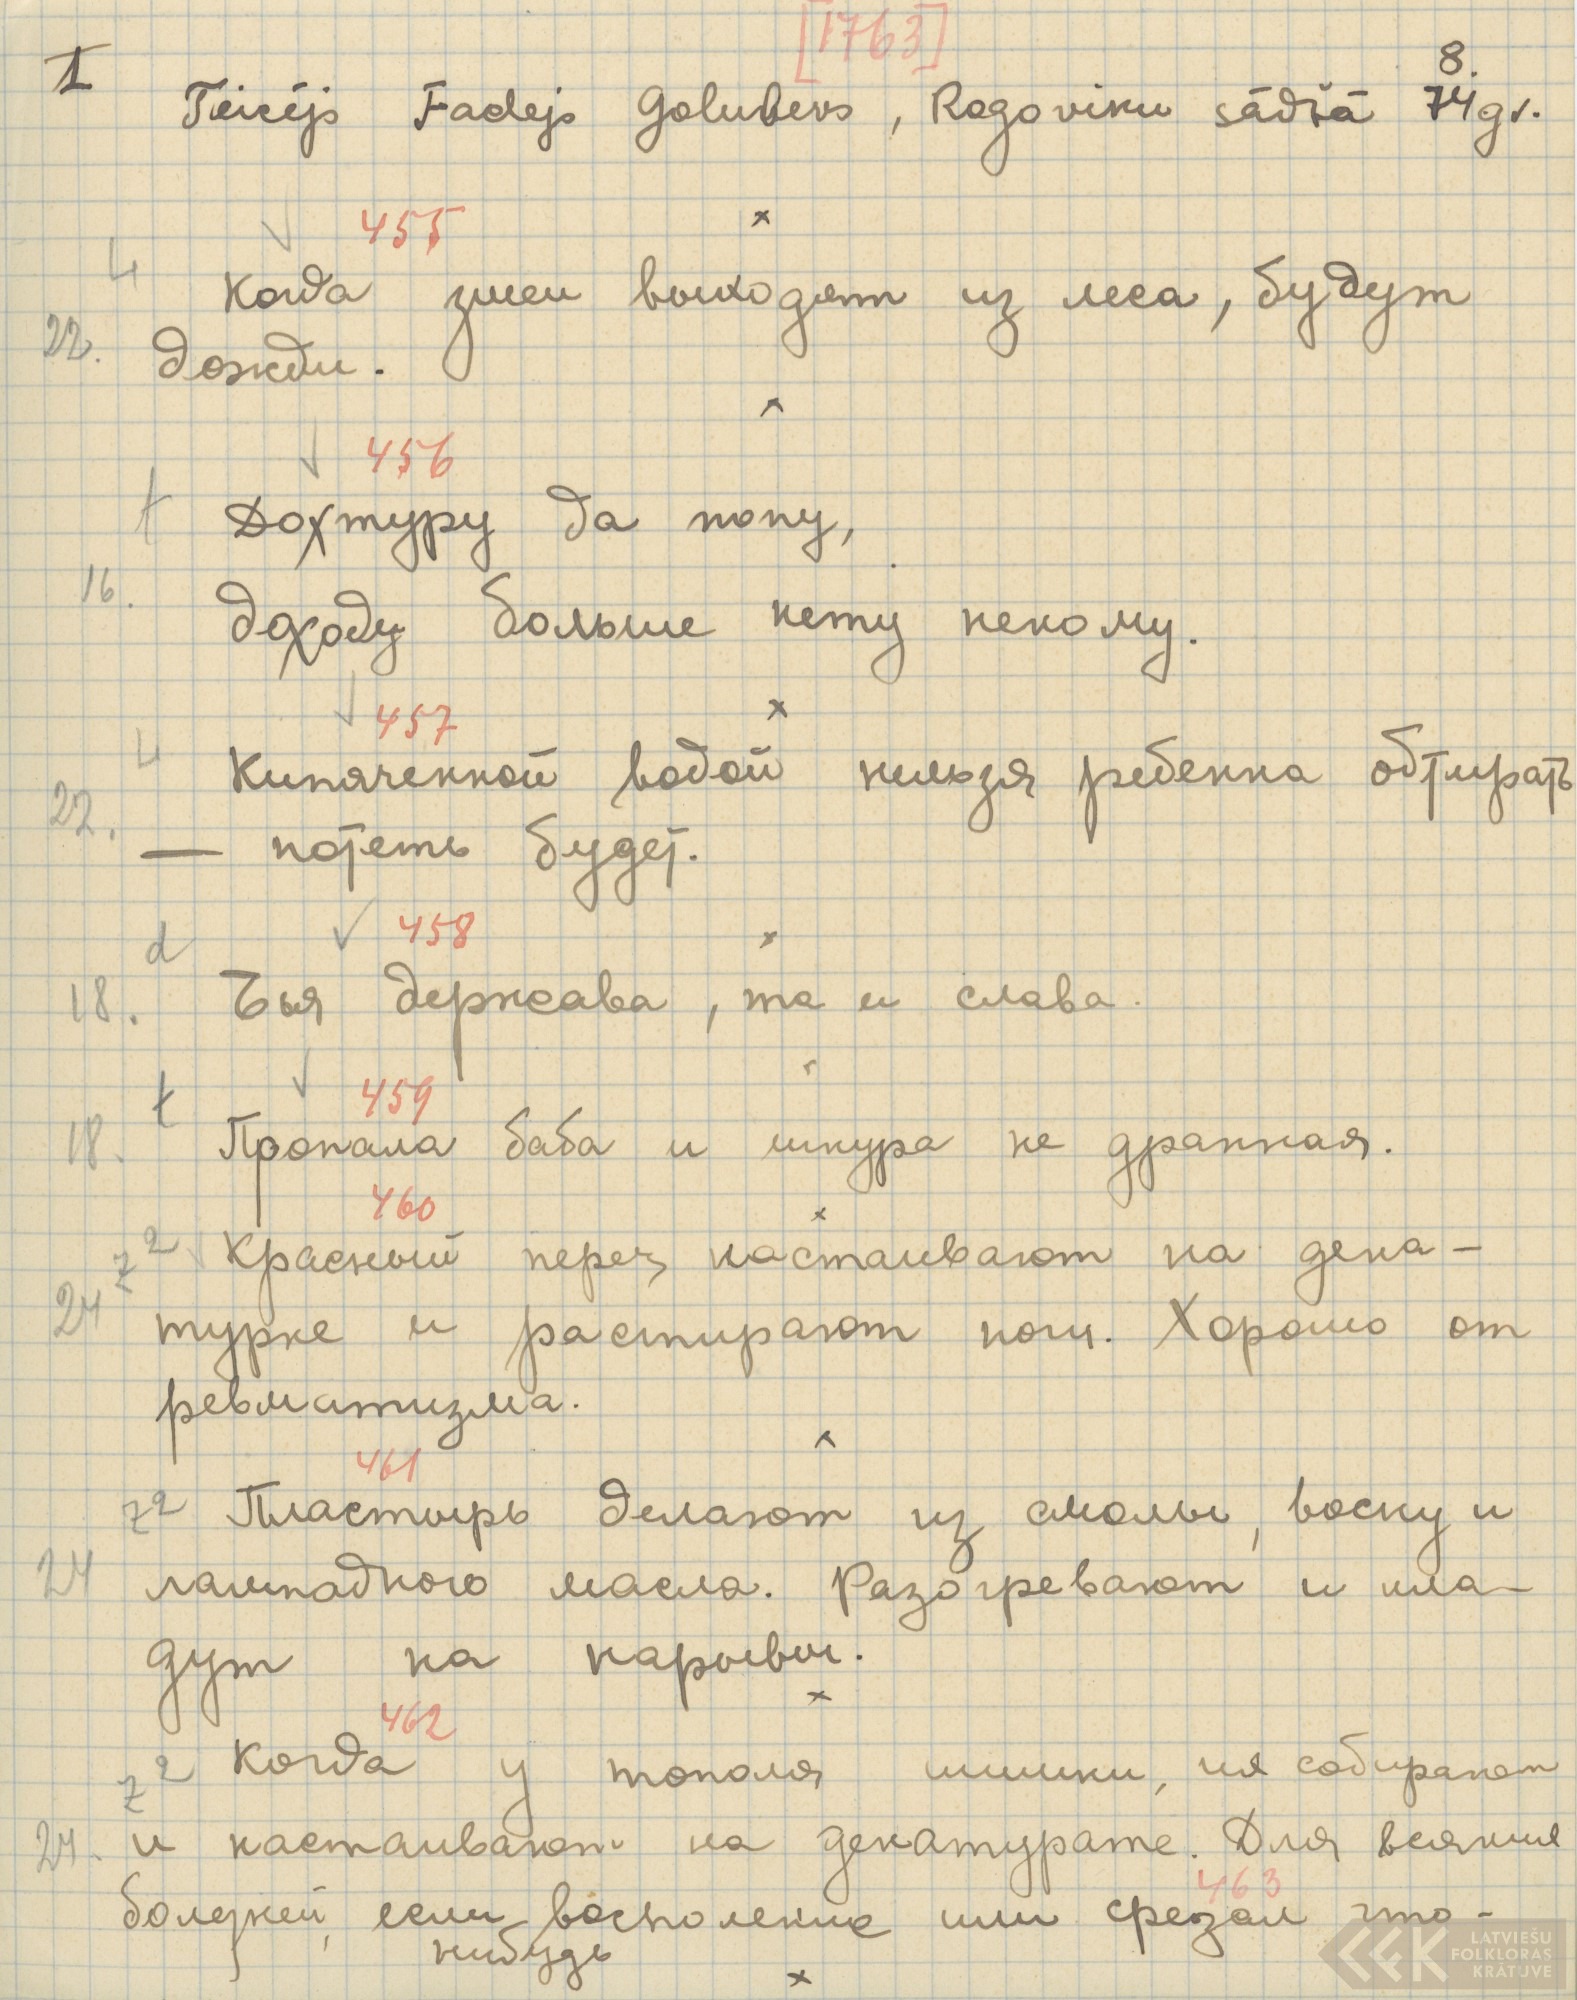 [1763]
8.
1 Teicējs Fadejs Golubevs, Rogoviku sādžā 74 gv.
455
ч Когда змеи выходят из леса, будут
22. дожди.
456
t Дохтуру да попу,
16. доходу больше нету некому.
457
ч Кипяченной водой нильзя ребенка обтирать
22. — потеть будет.
458
d
18. Чья держава, та и слава.
459
t
18. Пропала баба и шкура не дранная.
460
z2 Красный перец настаивают на дена-
24 турке и растирают ноги. Хорошо от
ревматизма.
461
z2 Пластырь делают из смолы, воску и
24 лампадного масла. Разогревают и кла-
дут на нарывы.
462
z2 Когда у тополя шишки, их собирают
24. и настаивают на денатурате. Для всяких
463
болезней, если восполение или срезал что-
нибудь
LATVIEŠU
FOLKLORAS
KRĀTUVE